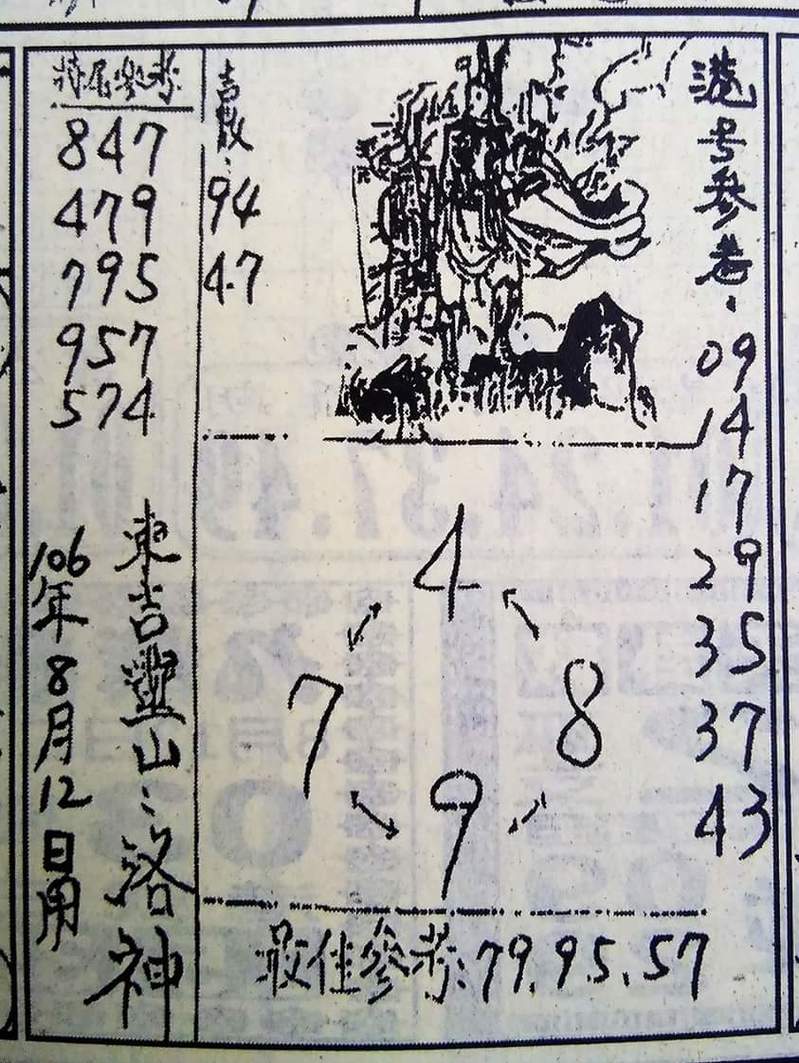 港号參考:
09
14
17
29
35
37
43
吉數:
94
47
特尾參考:
847
479
795
957
574
4
7
8
9
東吉靈山:洛神
106年8月12日用
最佳參考:79.95.57